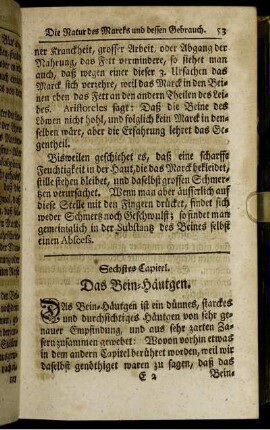 Die Natur des Marcks und dessen Gebrauch. 53
ner Kranckheit, grosser Arbeit, oder Abgang der
Nahrung, das Fett vermindere, so siehet man
auch, daß wegen einer dieser 3. Ursachen das
Marck sich verzehre, weil das Marck in den Bei-
nen eben das Fett an den andern Theilen des Lei-
bes. Aristoteles sagt: Daß die Beine des
Löwen nicht hohl, und folglich kein Marck in den-
selben wäre, aber die Erfahrung lehret das Ge-
gentheil.
Bisweilen geschiehet es, daß eine scharffe
Feuchtigkeit in der Haut, die das Marck bekleidet,
stille stehen bleibet, und daselbst grossen Schmer-
tzen verursachet. Wenn man aber äusserlich auf
diese Stelle mit den Fingern drücket, findet sich
weder Schmertz noch Geschwulst; so findet man
gemeiniglich in der Substantz des Beines selbst
einen Abscess.
Sechstes Capitel.
Das Bein-Häutgen.
Das Bein-Häutgen ist ein dünnes, starckes
und durchsichtiges Häutgen von sehr ge-
nauer Empfindung, und aus sehr zarten Za-
sern zusammen gewebet: Wovon vorhin etwas
in dem andern Capitel berühret worden, weil wir
daselbst genöthiget waren zu sagen, daß das
E 2 Bein-